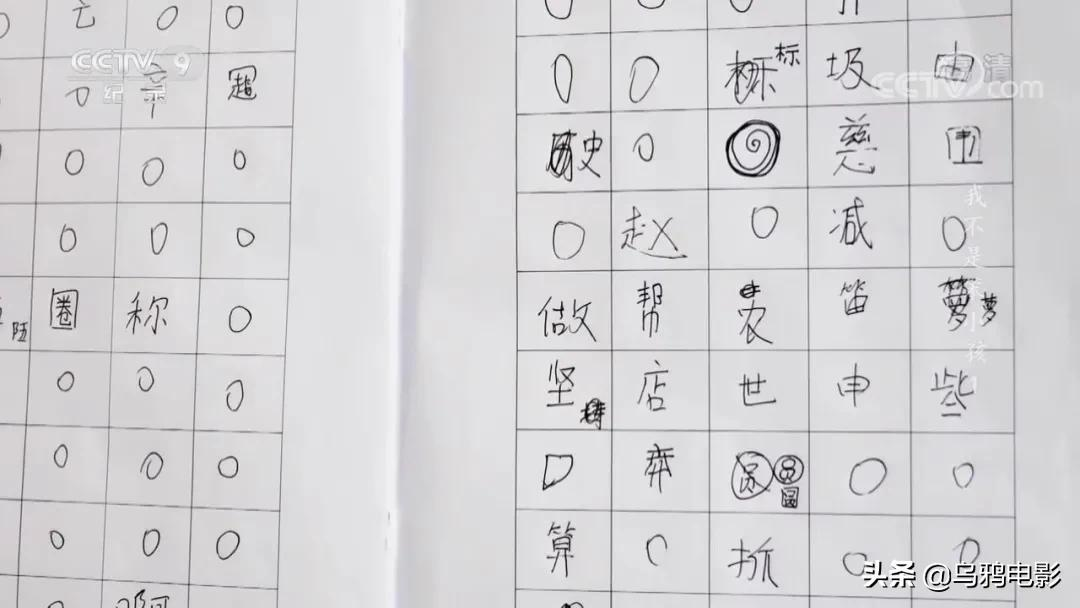 亡 0 0
CCTV 9
纪录
0 亲 超
0 0 0
0 0 0
陌 圈 称 0
0 0 0
0 0 0
0 0 0
啊
0 0 0
0 0 标 圾 由
CCTV.com 高清
史 0 慈
0 赵 0 减 0
做 帮 农 笛 萝 梦
坚 店 世 申 些
弃 圆 0 0
算 0 0 0
我不是笨小孩
头条 @乌鸦电影